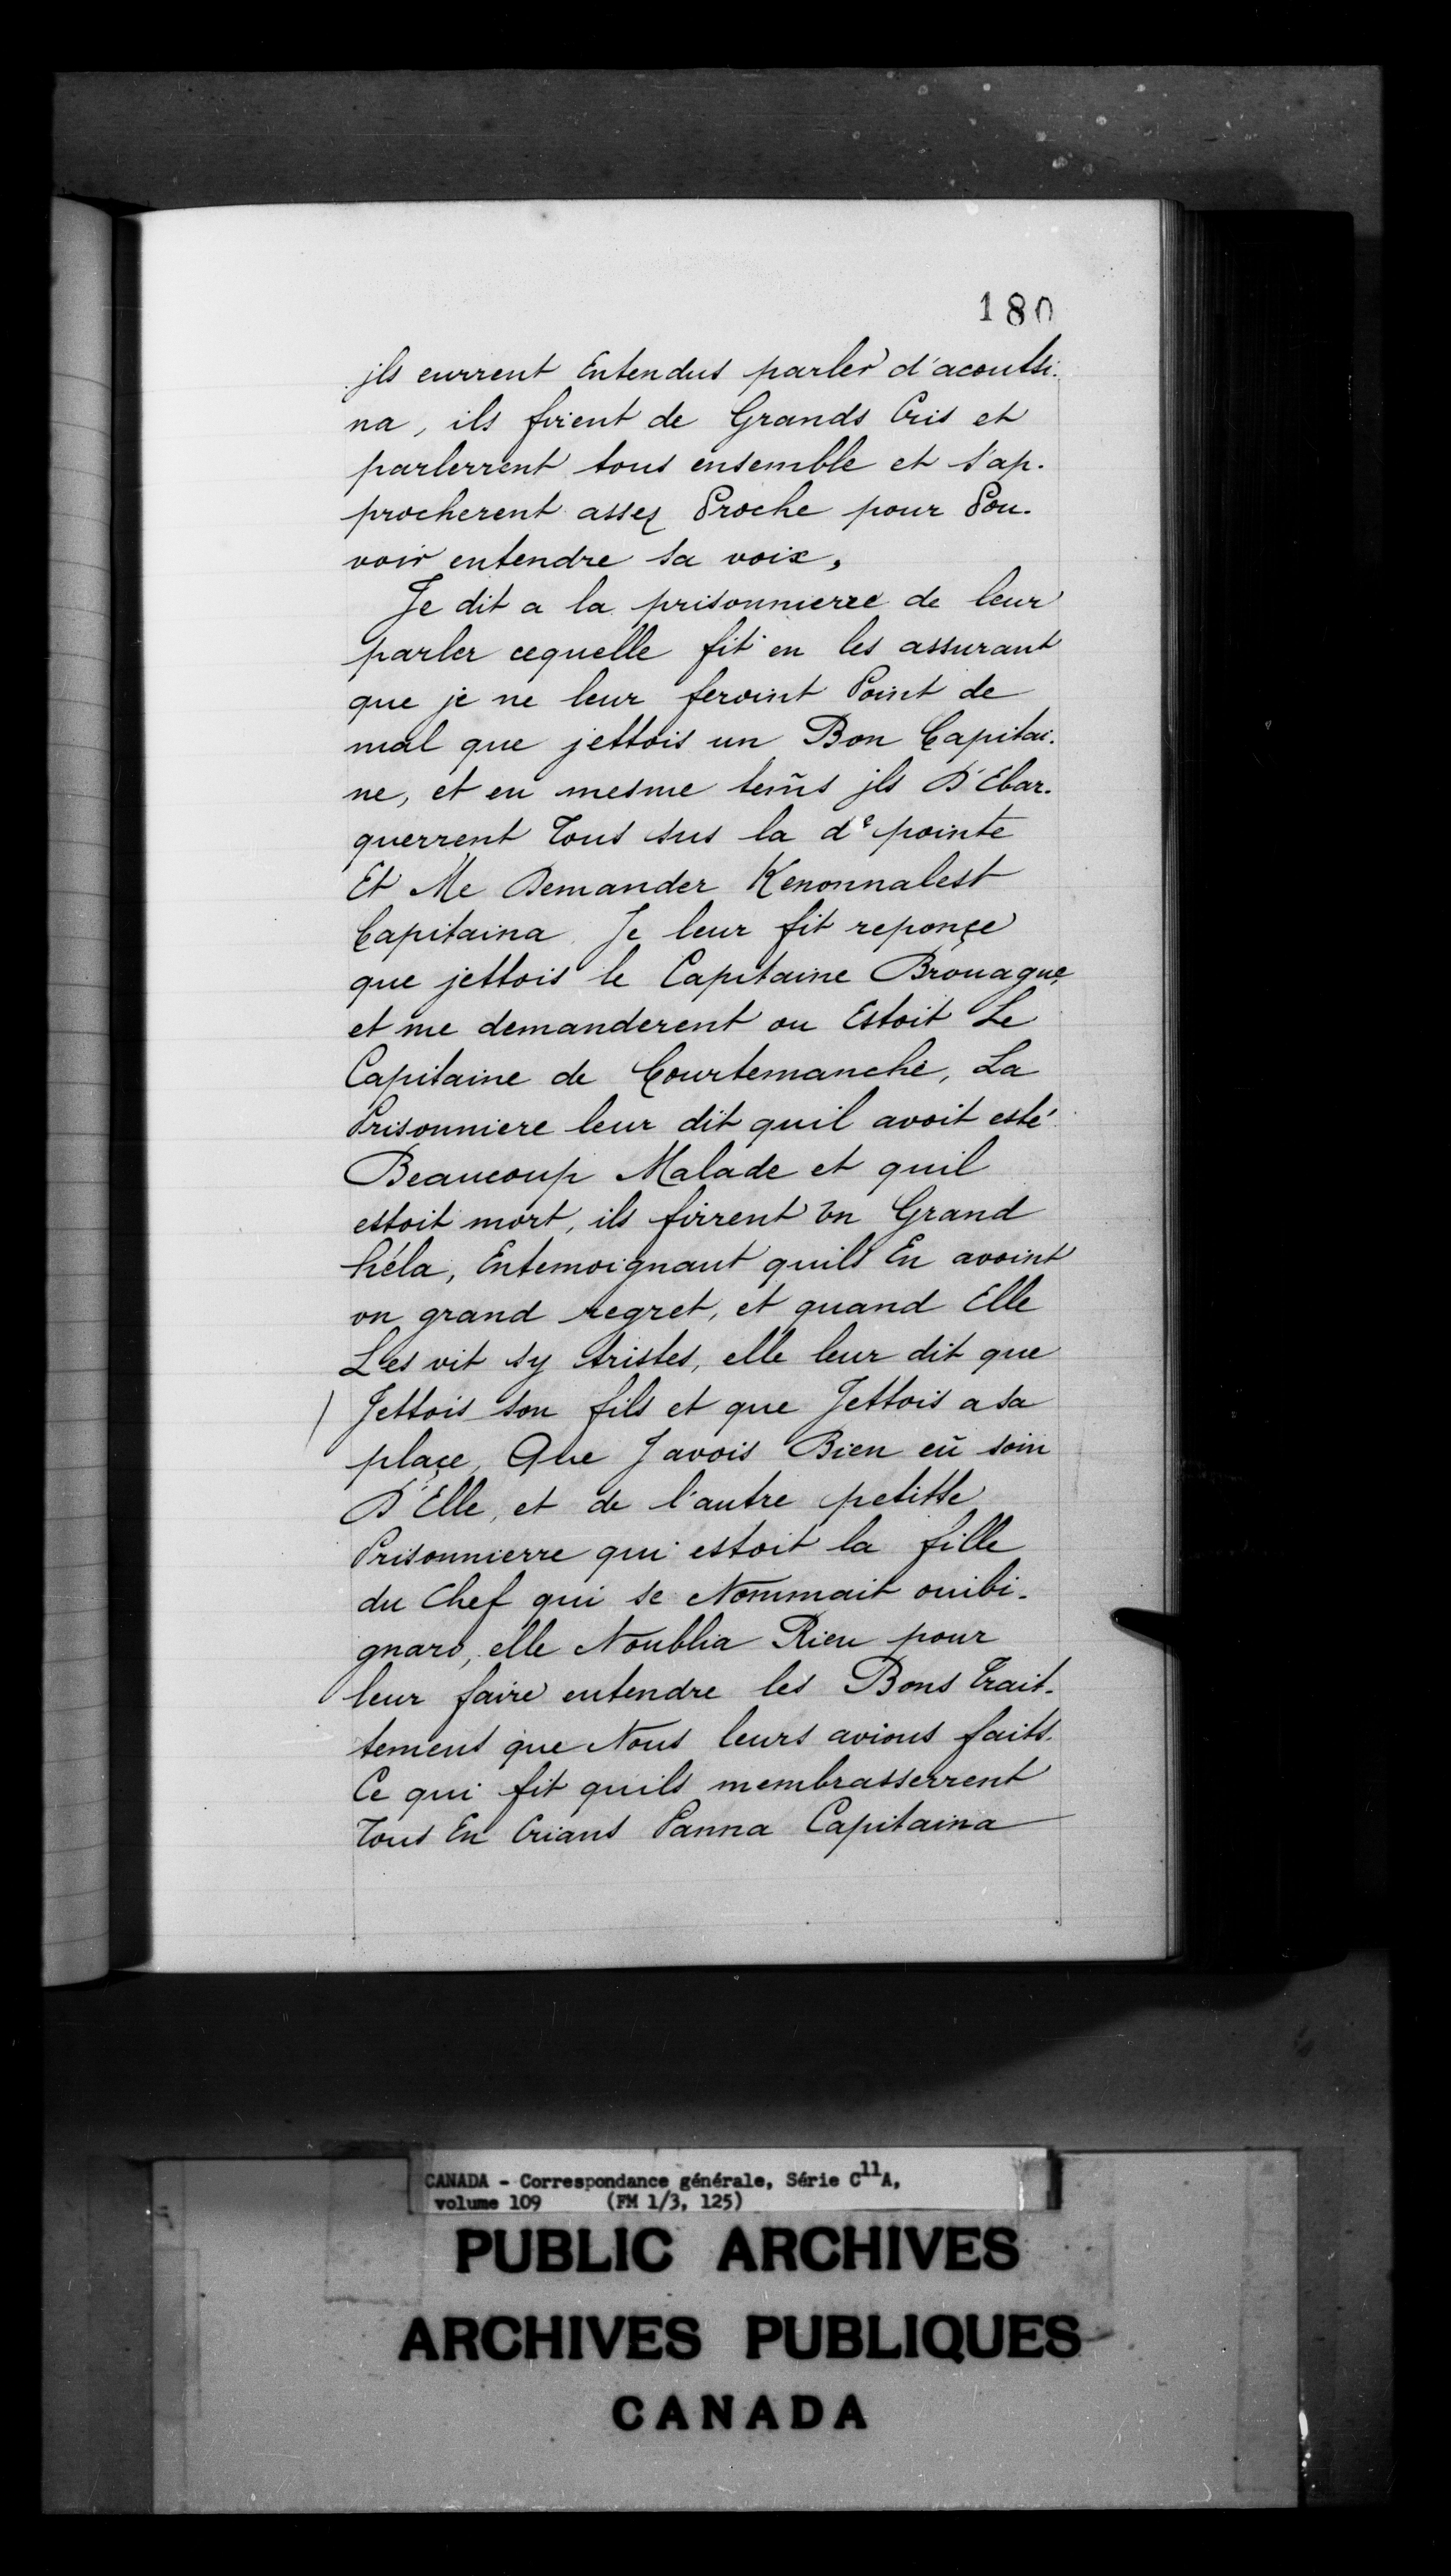 180
jls eurrent Entendus parler d'acoutsi-
na, ils firent de Grands Cris et
parlerrent tous ensemble et s'ap-
procherent assez Proche pour Pou-
voir entendre sa voix,
Je dit a la prisonnierre de leur
parler cequelle fit en les assurant
que je ne leur feroint Point de
mal que jettois un Bon Capitai-
ne, et en mesme tem̃s jls D'Ebar-
querrent Tous sus la de pointe
Et Me Demander Kenonnalest
Capitaina Je leur fit reponçe
que jettois le Capitaine Brouague,
et me demanderent ou Estoit Le
Capitaine de Courtemanche, La
Prisonniere leur dit quil avoit esté
Beaucoup Malade et quil
estoit mort, ils firrent un Grand
héla, Entemoignant quils En avoint
un grand regret, et quand Elle
Les vit sy tristes, elle leur dit que
Jettois son fils et que Jettois a sa
plaçe, Que Javois Bien eû soin
D'Elle, et de l'autre petitte
Prisonnierre qui estoit la fille
du Chef qui se Nommait ouibi-
gnaro, elle Noublia Rien pour
leur faire entendre les Bons Trait-
temens que Nous leurs avions faits.
Ce qui fit quils membrasserrent
Tous En Crians Panna Capitaina
CANADA - Correspondance générale, Série C11A,
volume 109 (FM 1/3, 125)
PUBLIC ARCHIVES
ARCHIVES PUBLIQUES
CANADA